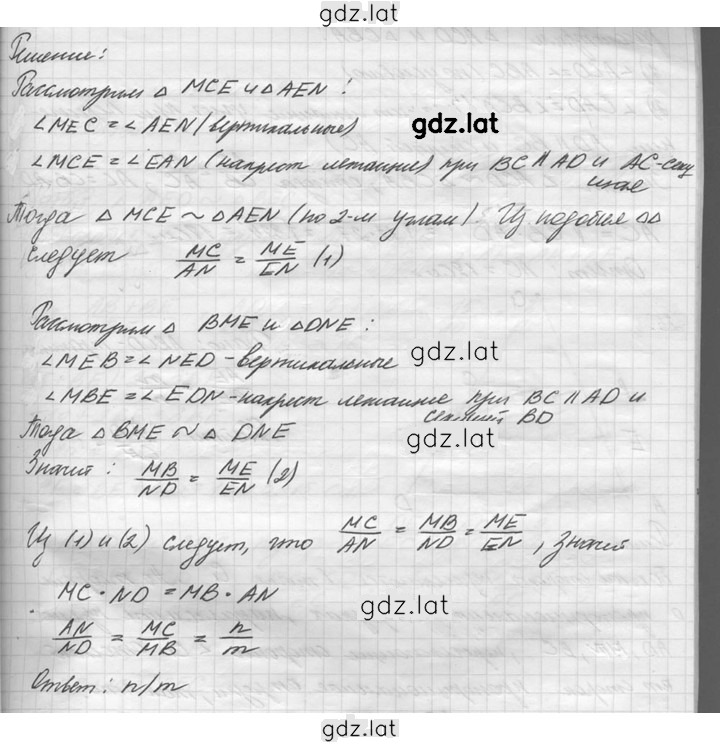 gdz.lat
Решение:
Рассмотрим △ MCE и △ AEN:
∠MEC = ∠AEN (вертикальные)
gdz.lat
∠MCE = ∠EAN (накрест лежащие) при BC ∥ AD и AC-секу
щие
Тогда △ MCE ~ △AEN (по 2-м углам). Из подобия △△
следует MC/AN = ME/EN (1)
Рассмотрим △ BME и △DNE:
∠MEB = ∠NED - вертикальные
gdz.lat
∠MBE = ∠EDN - накрест лежащие при BC ∥ AD и
BD
Тогда △BME ~ △ DNE
gdz.lat
Значит: MB/ND = ME/EN (2)
Из (1) и (2) следует, что MC/AN = MB/ND = ME/EN, значит
MC · ND = MB · AN
gdz.lat
AN/ND = MC/MB = n/m
Ответ: n/m
gdz.lat